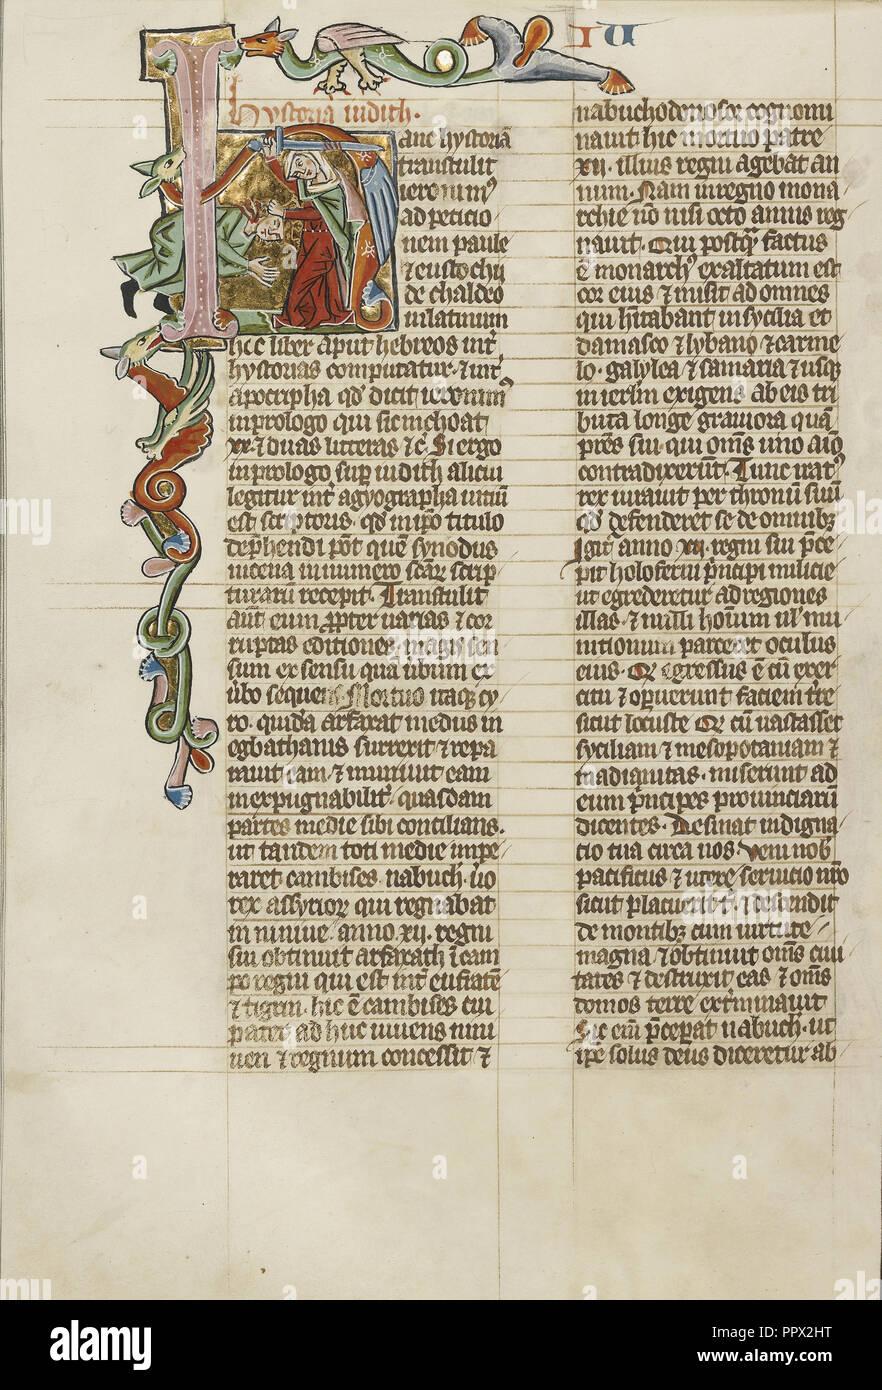 IU
hystoria iudith.
anc hystoriā
transtulit
ieronimꝰ
ad peticio
nem paule
⁊ eustochii
de chaldeo
in latinum
hec liber aput hebreos int̄
hystorias computatur ⁊ int̄
apocripha qd̄ dicit ieronimꝰ
in prologo qui sic inchoat
xx. ⁊ duas litteras ⁊ c̄ Si ergo
in prologo sup̄ iudith alicui
legitur int̄ agyographa uitiū
est scriptoris qd̄ in ip̄o titulo
dep̄hendi pōt quē synodus
nicena in numero scāꝝ scrip
turarū recepit. Transtulit
aūt eum ꝓpter uarias ⁊ cor
ruptas editiones magis sen
sum ex sensu quā ūbum ex
ūbo sequens. Mortuo itaqꝫ cy
ro. quidā arfaxat medus in
egbathanis surrexit ⁊ repa
rauit eam ⁊ muniuit eam
inexpugnabilit̄. quasdam
partes medie sibi concilians.
ut tandem toti medie impe
raret cambises. nabuch. ūo
rex assyrioꝝ qui regnabat
in niniue anno. xii. regni
sui obtinuit arfaxath ī cam
po regni qui est int̄ eufratē
⁊ tigrin. hic ē cambises cui
pater adhuc uiuens nini
uen ⁊ regnum concessit ⁊
nabuchodonosor cognomi
nauit hic mortuo patre
xii. illius regni agebat an
num. Nam in regno mona
rchie ūo nisi octo annis reg
nauit. Qui postqȝ factus
ē monarchꝰ exaltatum est
cor eius ⁊ misit ad omnes
qui hītabant in sycilia et
damasco ⁊ lybano ⁊ carme
lo. galylea ⁊ samaria ⁊ usqꝫ
in ierlm̄ exigens ab eis tri
buta longe grauiora quā
pr̄es sui. qui om̄s uno aīo
contradixerūt. Tunc iratꝰ
rex iurauit per thronū suū
qd̄ defenderet se de omnibꝫ
Igit̄ anno xii. regni sui p̄ce
pit holoferni p̄ncipi milicie
ut egrederetur ad regiones
illas. ⁊ nulli hominū ul' mu
nitionum parceret oculus
eius. Qui egressus ē cū exer
citu ⁊ opuerunt faciem tr̄e
sicut locuste Qui cū uastasset
syciliam ⁊ mesopotaniam ⁊
madianitas. miserunt ad
eum p̄ncipes prouinciarū
dicentes. Desinat indigna
cio tua circa nos. Veni nob̄
pacificus ⁊ utere seruicio nr̄o
sicut placuerit t̄. ⁊ descendit
de montibꝫ cum uirtute
magna ⁊ obtinuit om̄s ciui
tates ⁊ destruxit eas ⁊ om̄s
domos terre ext̄minauit
Sic eni p̄ceperat nabuch. ut
ip̄e solus deus diceretur ab
alamy
Image ID: PPX2HT
www.alamy.com